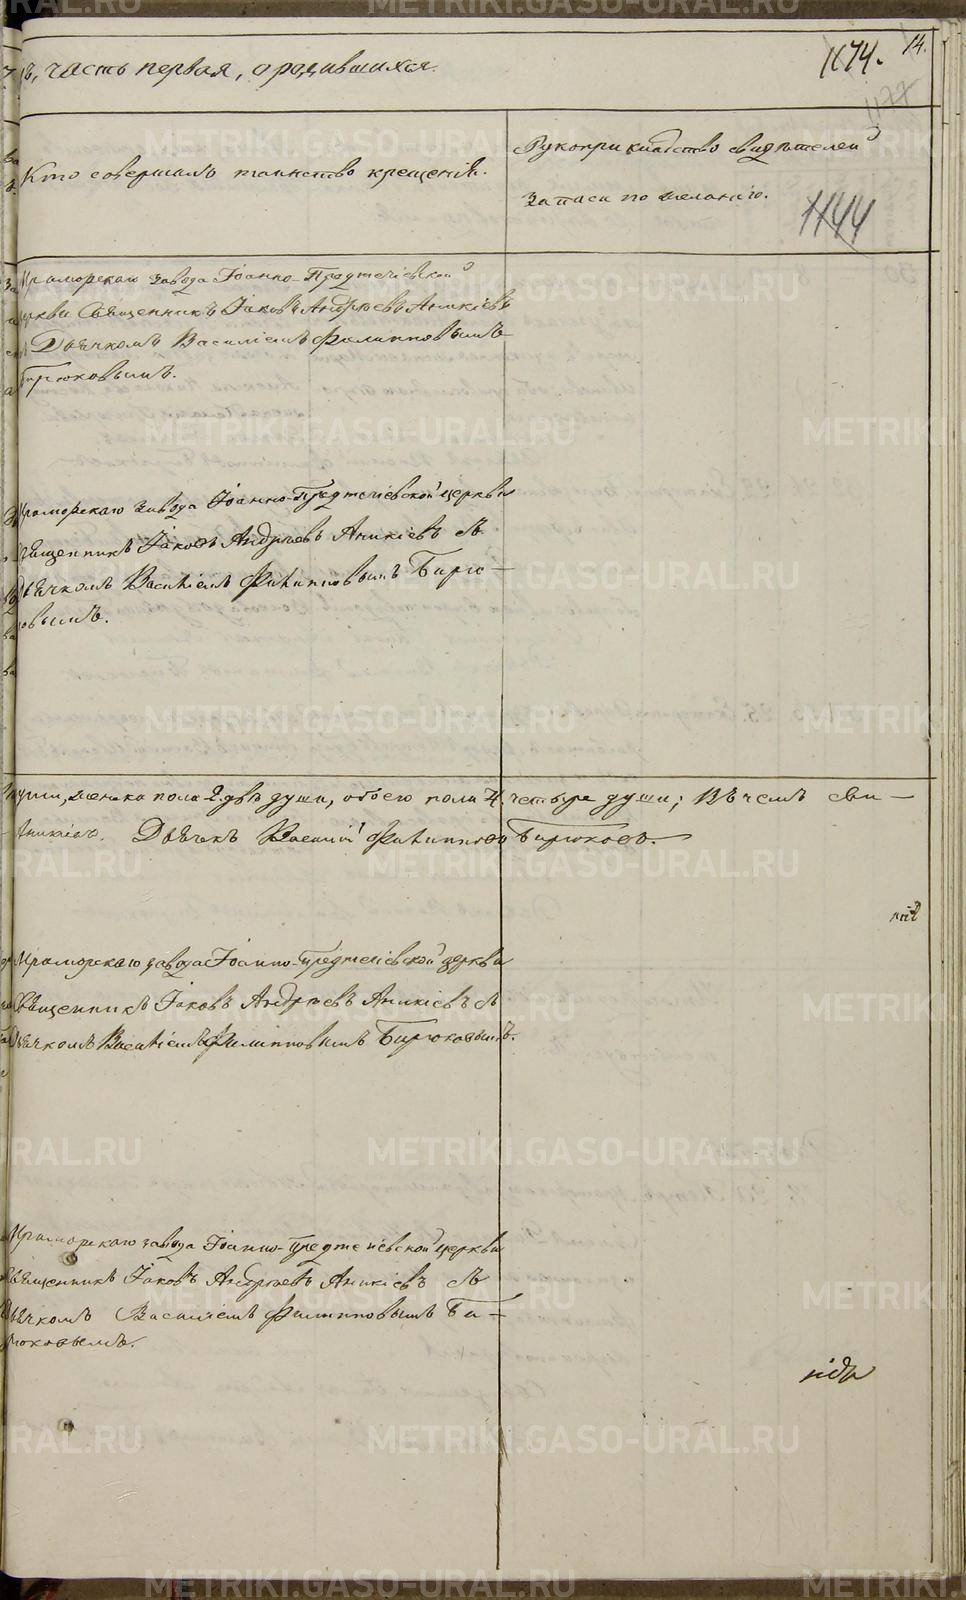 въ, часть первая, о родившихся.
1174.
14.
1177
Кто совершалъ таинство крещенія.
Рукоприкладство свидѣтелей
записи по желанію.
1144
Мраморскаго завода Іоанно-Предтечіевской
церкви Священникъ Іаковъ Андреевъ Аникіевъ
съ Дьячкомъ Василіемъ Филипповымъ
Бирюковымъ.
Мраморскаго завода Іоанно-Предтечіевской церкви
Священникъ Іаковъ Андреевъ Аникіевъ съ
Дьячкомъ Василіемъ Филипповымъ Бирю-
ковымъ.
души, женска пола 2. двѣ души, обоего пола 4. четыре души; Въ чемъ сви-
Аникіевъ. Дьячекъ Василій Филипповъ Бирюковъ.
Мраморскаго завода Іоанно-Предтечіевской церкви
Священникъ Іаковъ Андреевъ Аникіевъ съ
Дьячкомъ Василіемъ Филипповымъ Бирюковымъ.
Мраморскаго завода Іоанно-Предтечіевской церкви
Священникъ Іаковъ Андреевъ Аникіевъ съ
Дьячкомъ Василіемъ Филипповымъ Би-
рюковымъ.
METRIKI.GASO-URAL.RU